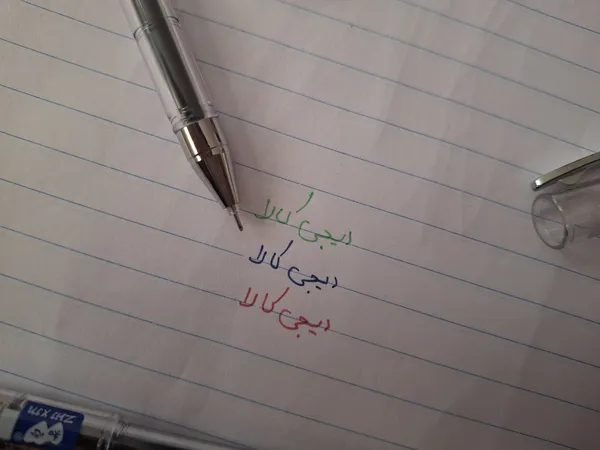 دیجی کالا
دیجی کالا
دیجی کالا
ZHI XIN